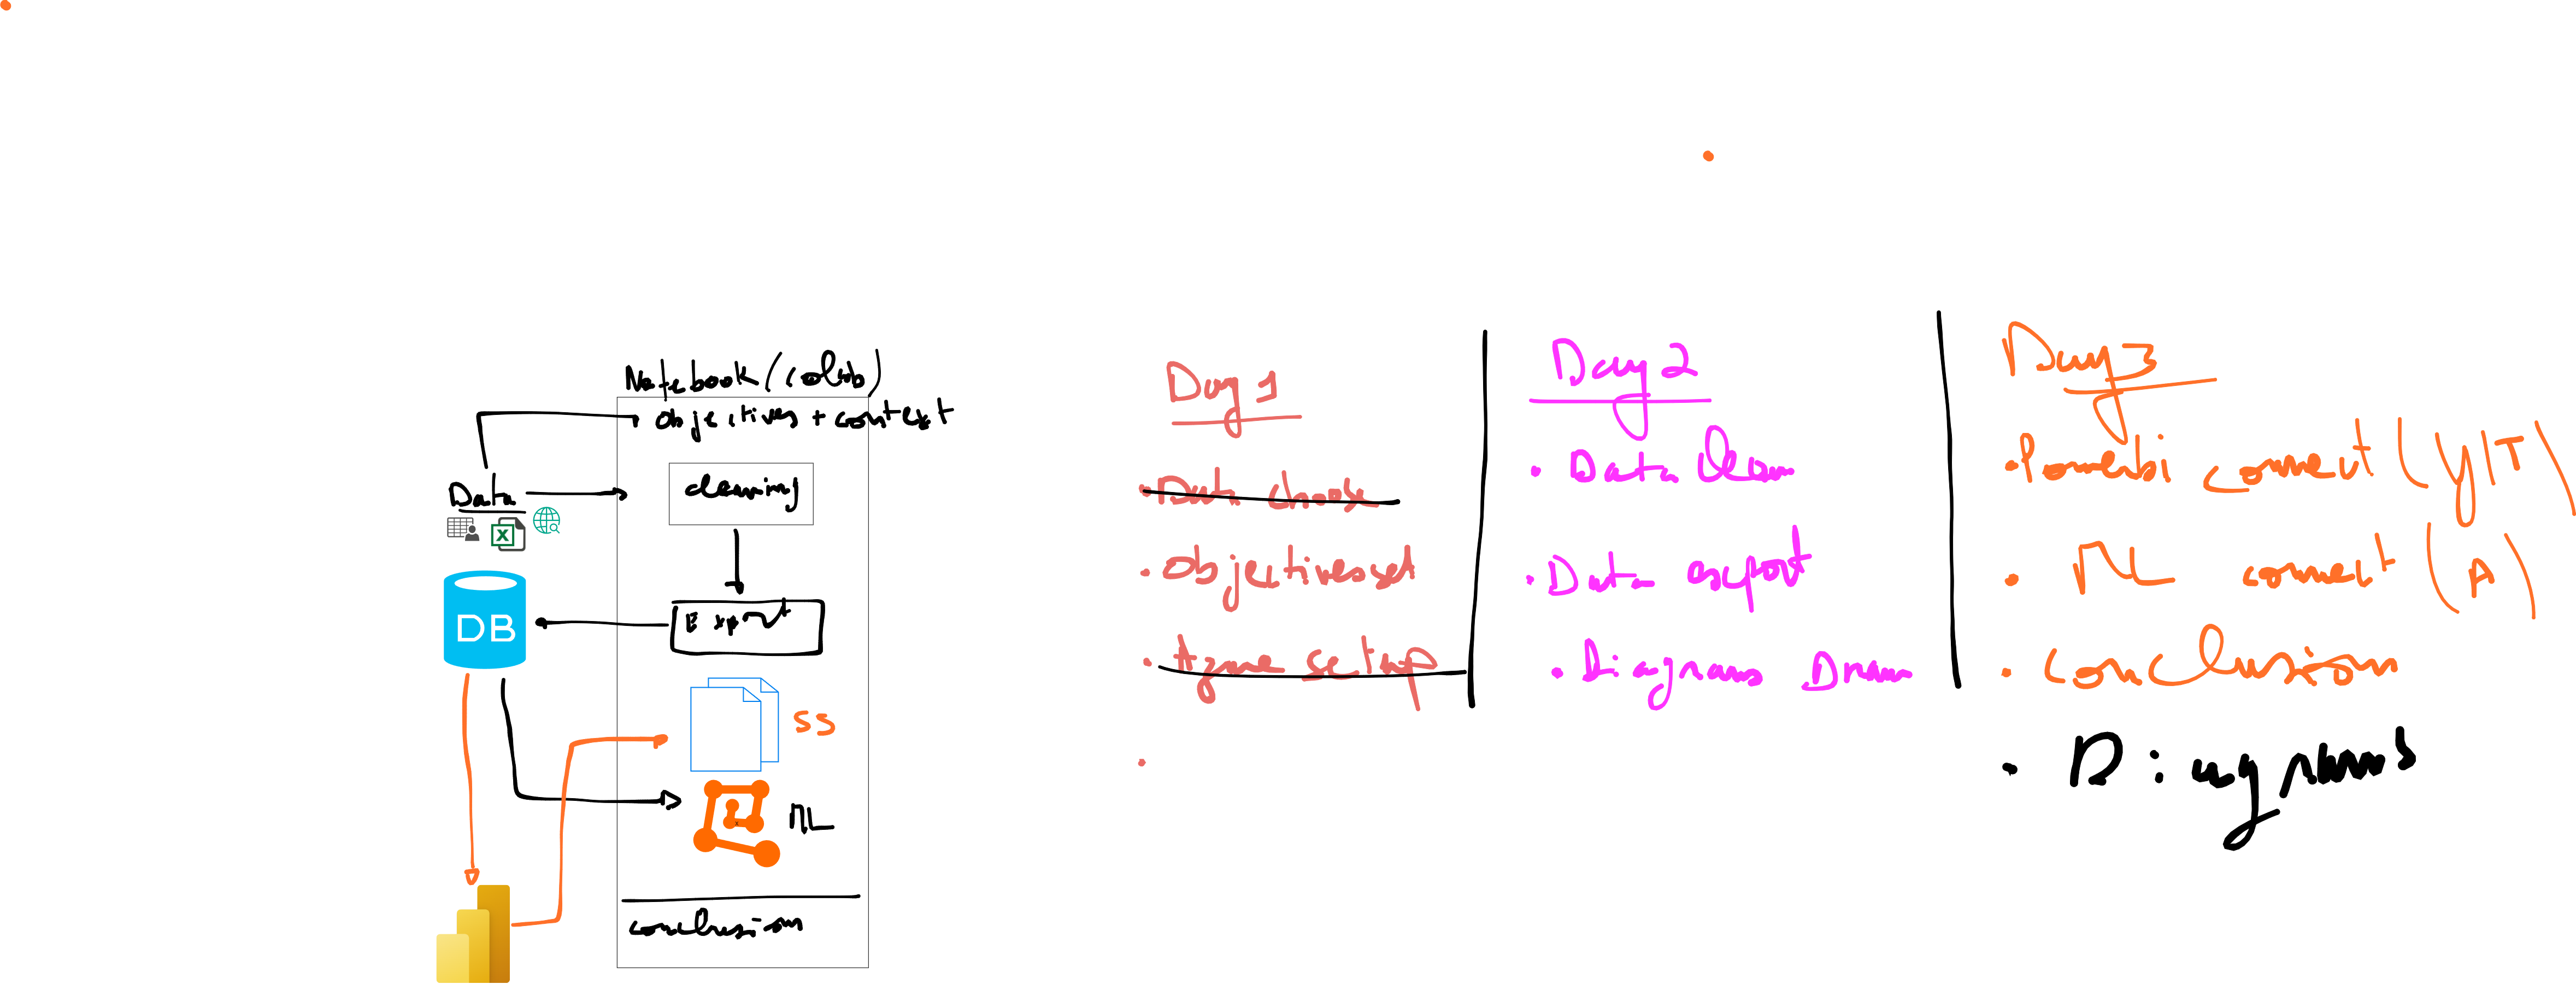 Notebook (colab)
objectives + context
Data
cleaning
X
DB
Export
SS
ML
conclusion
Day 1
• Data choose
• Objectives set
• Azure setup
•
Day 2
• Data Clean
• Data export
• Diagrams Draw
Day 3
• Powerbi connect (Y/T)
• ML connect (A)
• Conclusion
• Diagrams